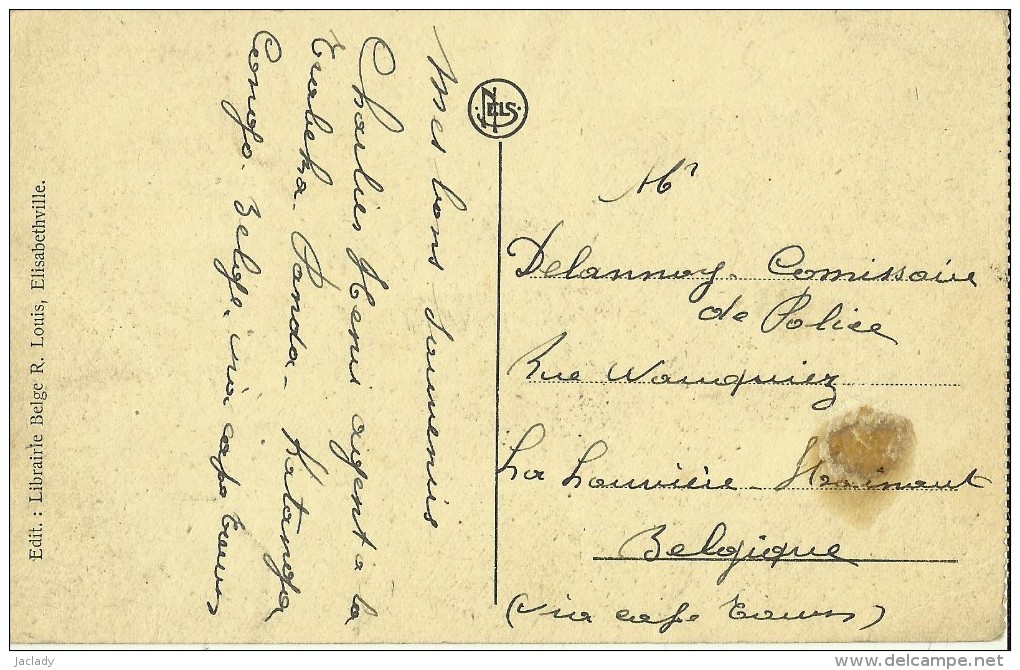 Mes bons souvenirs
Charlier Henri agent à la
Trabeka. Panda. Katanga
Congo. Belge. via cape Town
Edit. : Librairie Belge R. Louis, Elisabethville.
NELS
Mr
Delannoy. Comissaire
de Police
Rue Wauquiez
La Louvière. Hainaut
Belgique
(via cape Town)
jaclady
http://www.delcampe.net